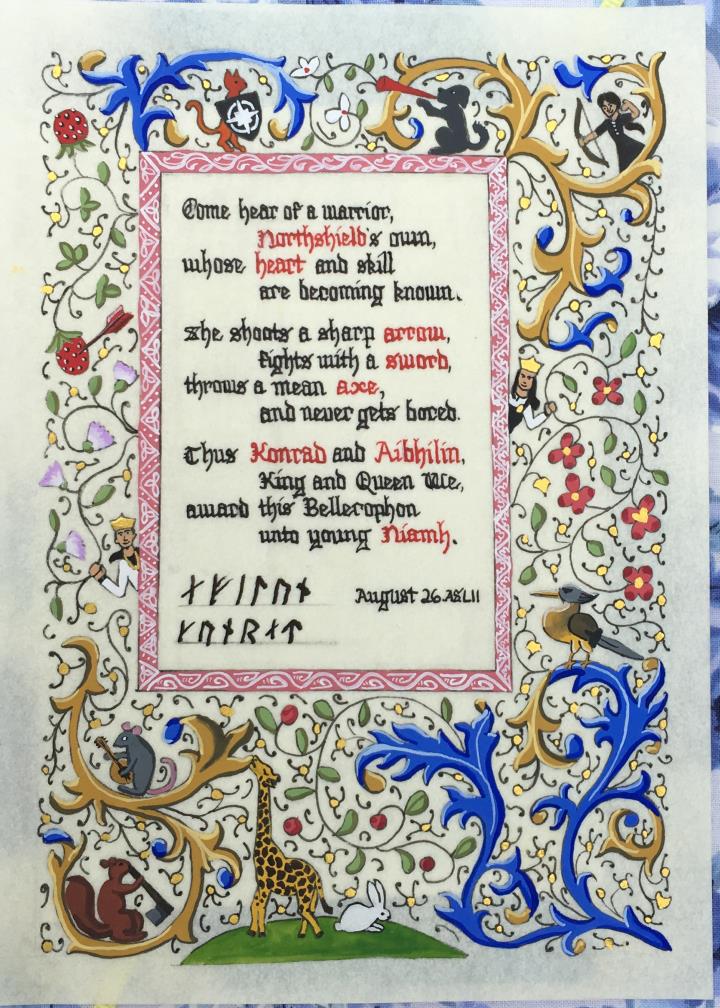 Come hear of a warrior,
Northshield's own,
whose heart and skill
are becoming known.
She shoots a sharp arrow,
fights with a sword,
throws a mean axe,
and never gets bored.
Thus Konrad and Aibhilin,
King and Queen We,
award this Bellerophon
unto young Niamh.
ᛅᚠᛁᛚᚢᚾ August 26 AS LII
ᚴᚢᚾᚱᛅᛏ